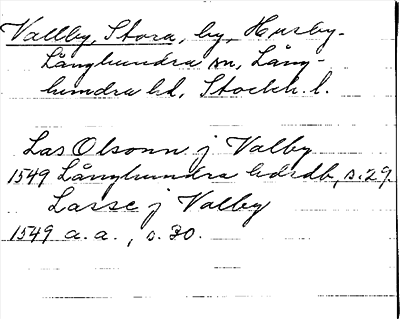 Vallby, Stora, by, Husby-
Långhundra sn, Lång-
hundra hd, Stockh. l.
Las Olsonn j Valby
1549 Långhundra hdrdb, s. 29.
Lasse j Valby
1549 a. a., s. 30.